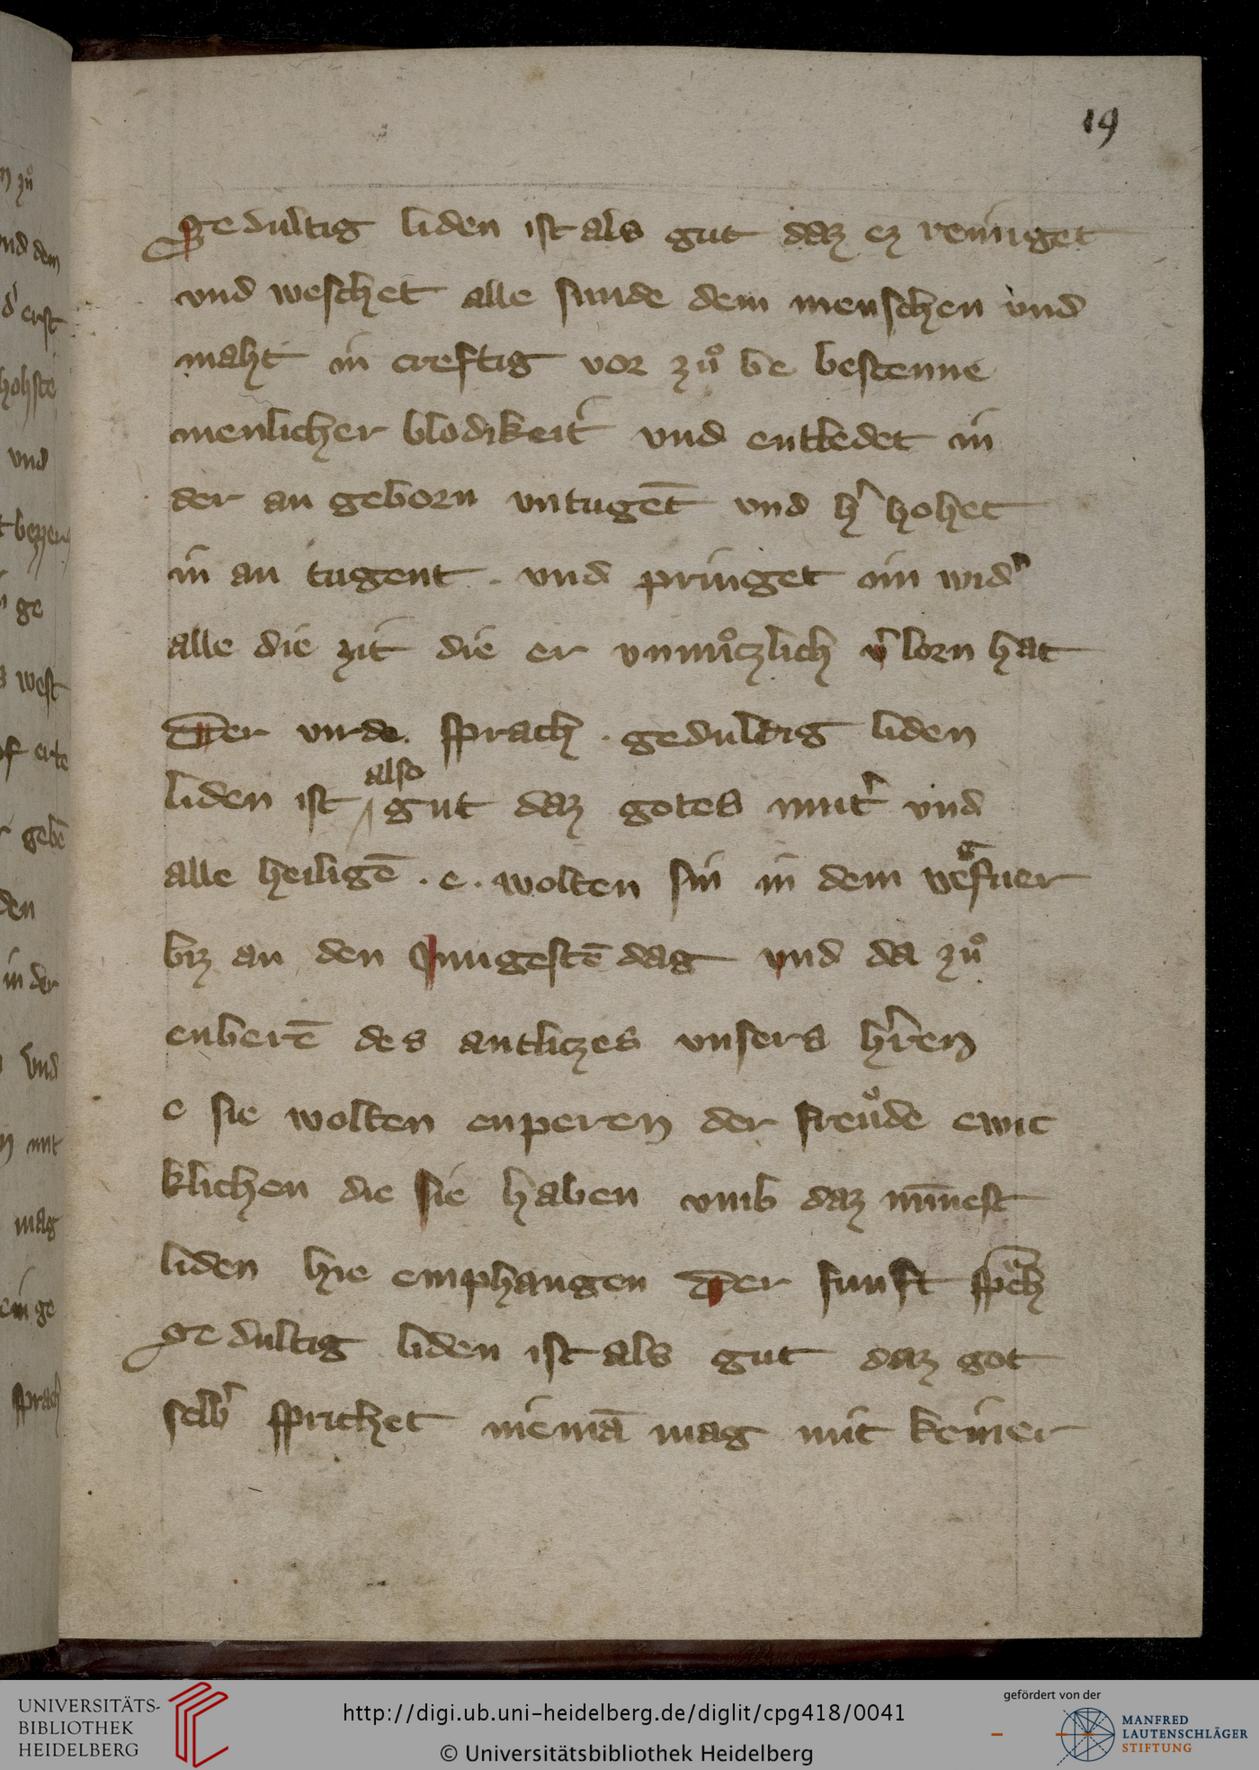 19
gedultig liden ist als gut daz ez reiniget
vnd weschet alle sunde dem menschen vnd
maht in creftig vor zuͦ be bestenne
menlicher blodikeit vnd entledet in
der an geborn vntugēt vnd hͥ hohet
in an tugent . vnd pringet im widͥ
alle die zit die er vnnuͦtzlich vͥ lorn hat
Der virde. sprach . geduldig liden
liden ist also gut daz gotes mutͥ vnd
alle heiligē . e . wolten sin in dem
biz an den Jungestē dag vnd da zuͦ
enberē des antlitzes vnsers hͥren
e sie wolten enperen der freuͦde ewic
klichen die sie haben vmb daz minest
liden hie emphangen Der funft spch
gedultig liden ist als gut daz got
selbͥ sprichet niemā mag mit keiner
n zuͦ
vnd dem
erst
hohste
vnd
ge
west
gebē
den
in der
vnd
mit
mag
ein ge
sprach
UNIVERSITÄTS-
BIBLIOTHEK
HEIDELBERG
http://digi.ub.uni-heidelberg.de/diglit/cpg418/0041
© Universitätsbibliothek Heidelberg
gefördert von der
MANFRED
LAUTENSCHLÄGER
STIFTUNG